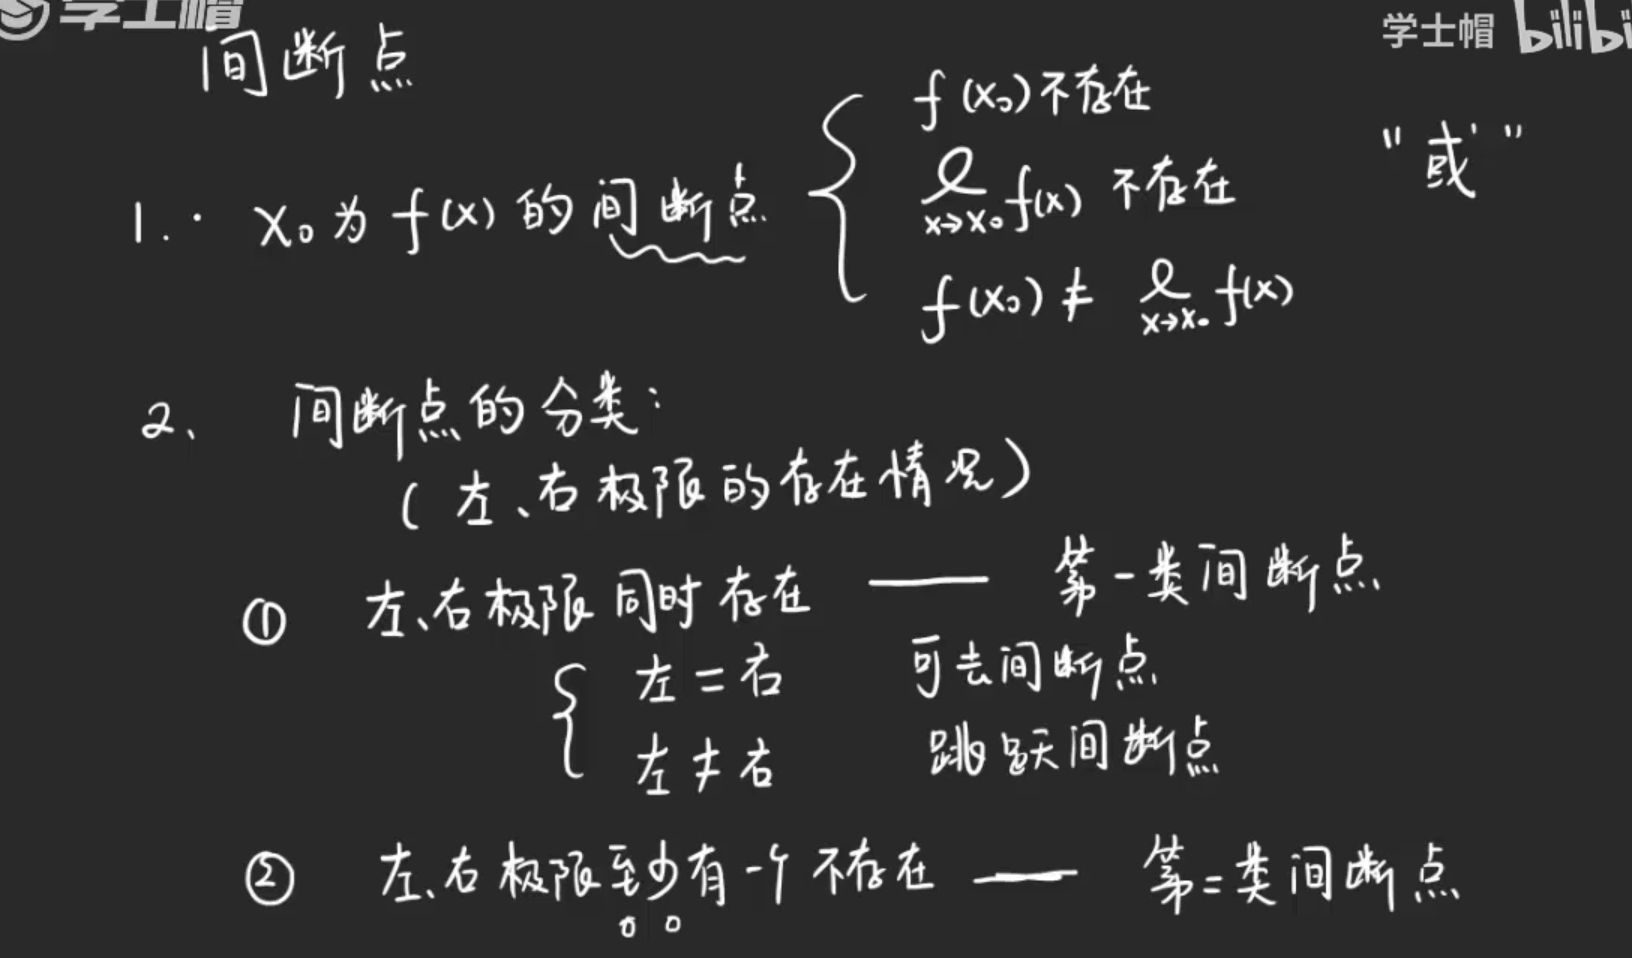 学士帽
学士帽 bilibi
间断点
1. · x₀为 f(x) 的间断点 { f(x₀)不存在 "或"
l x→x₀ f(x) 不存在
f(x₀) ≠ l x→x₀ f(x)
2、 间断点的分类:
(左、右极限的存在情况)
① 左、右极限同时存在 —— 第一类间断点
{ 左 = 右 可去间断点
左 ≠ 右 跳跃间断点
② 左、右极限至少有一个不存在 —— 第二类间断点